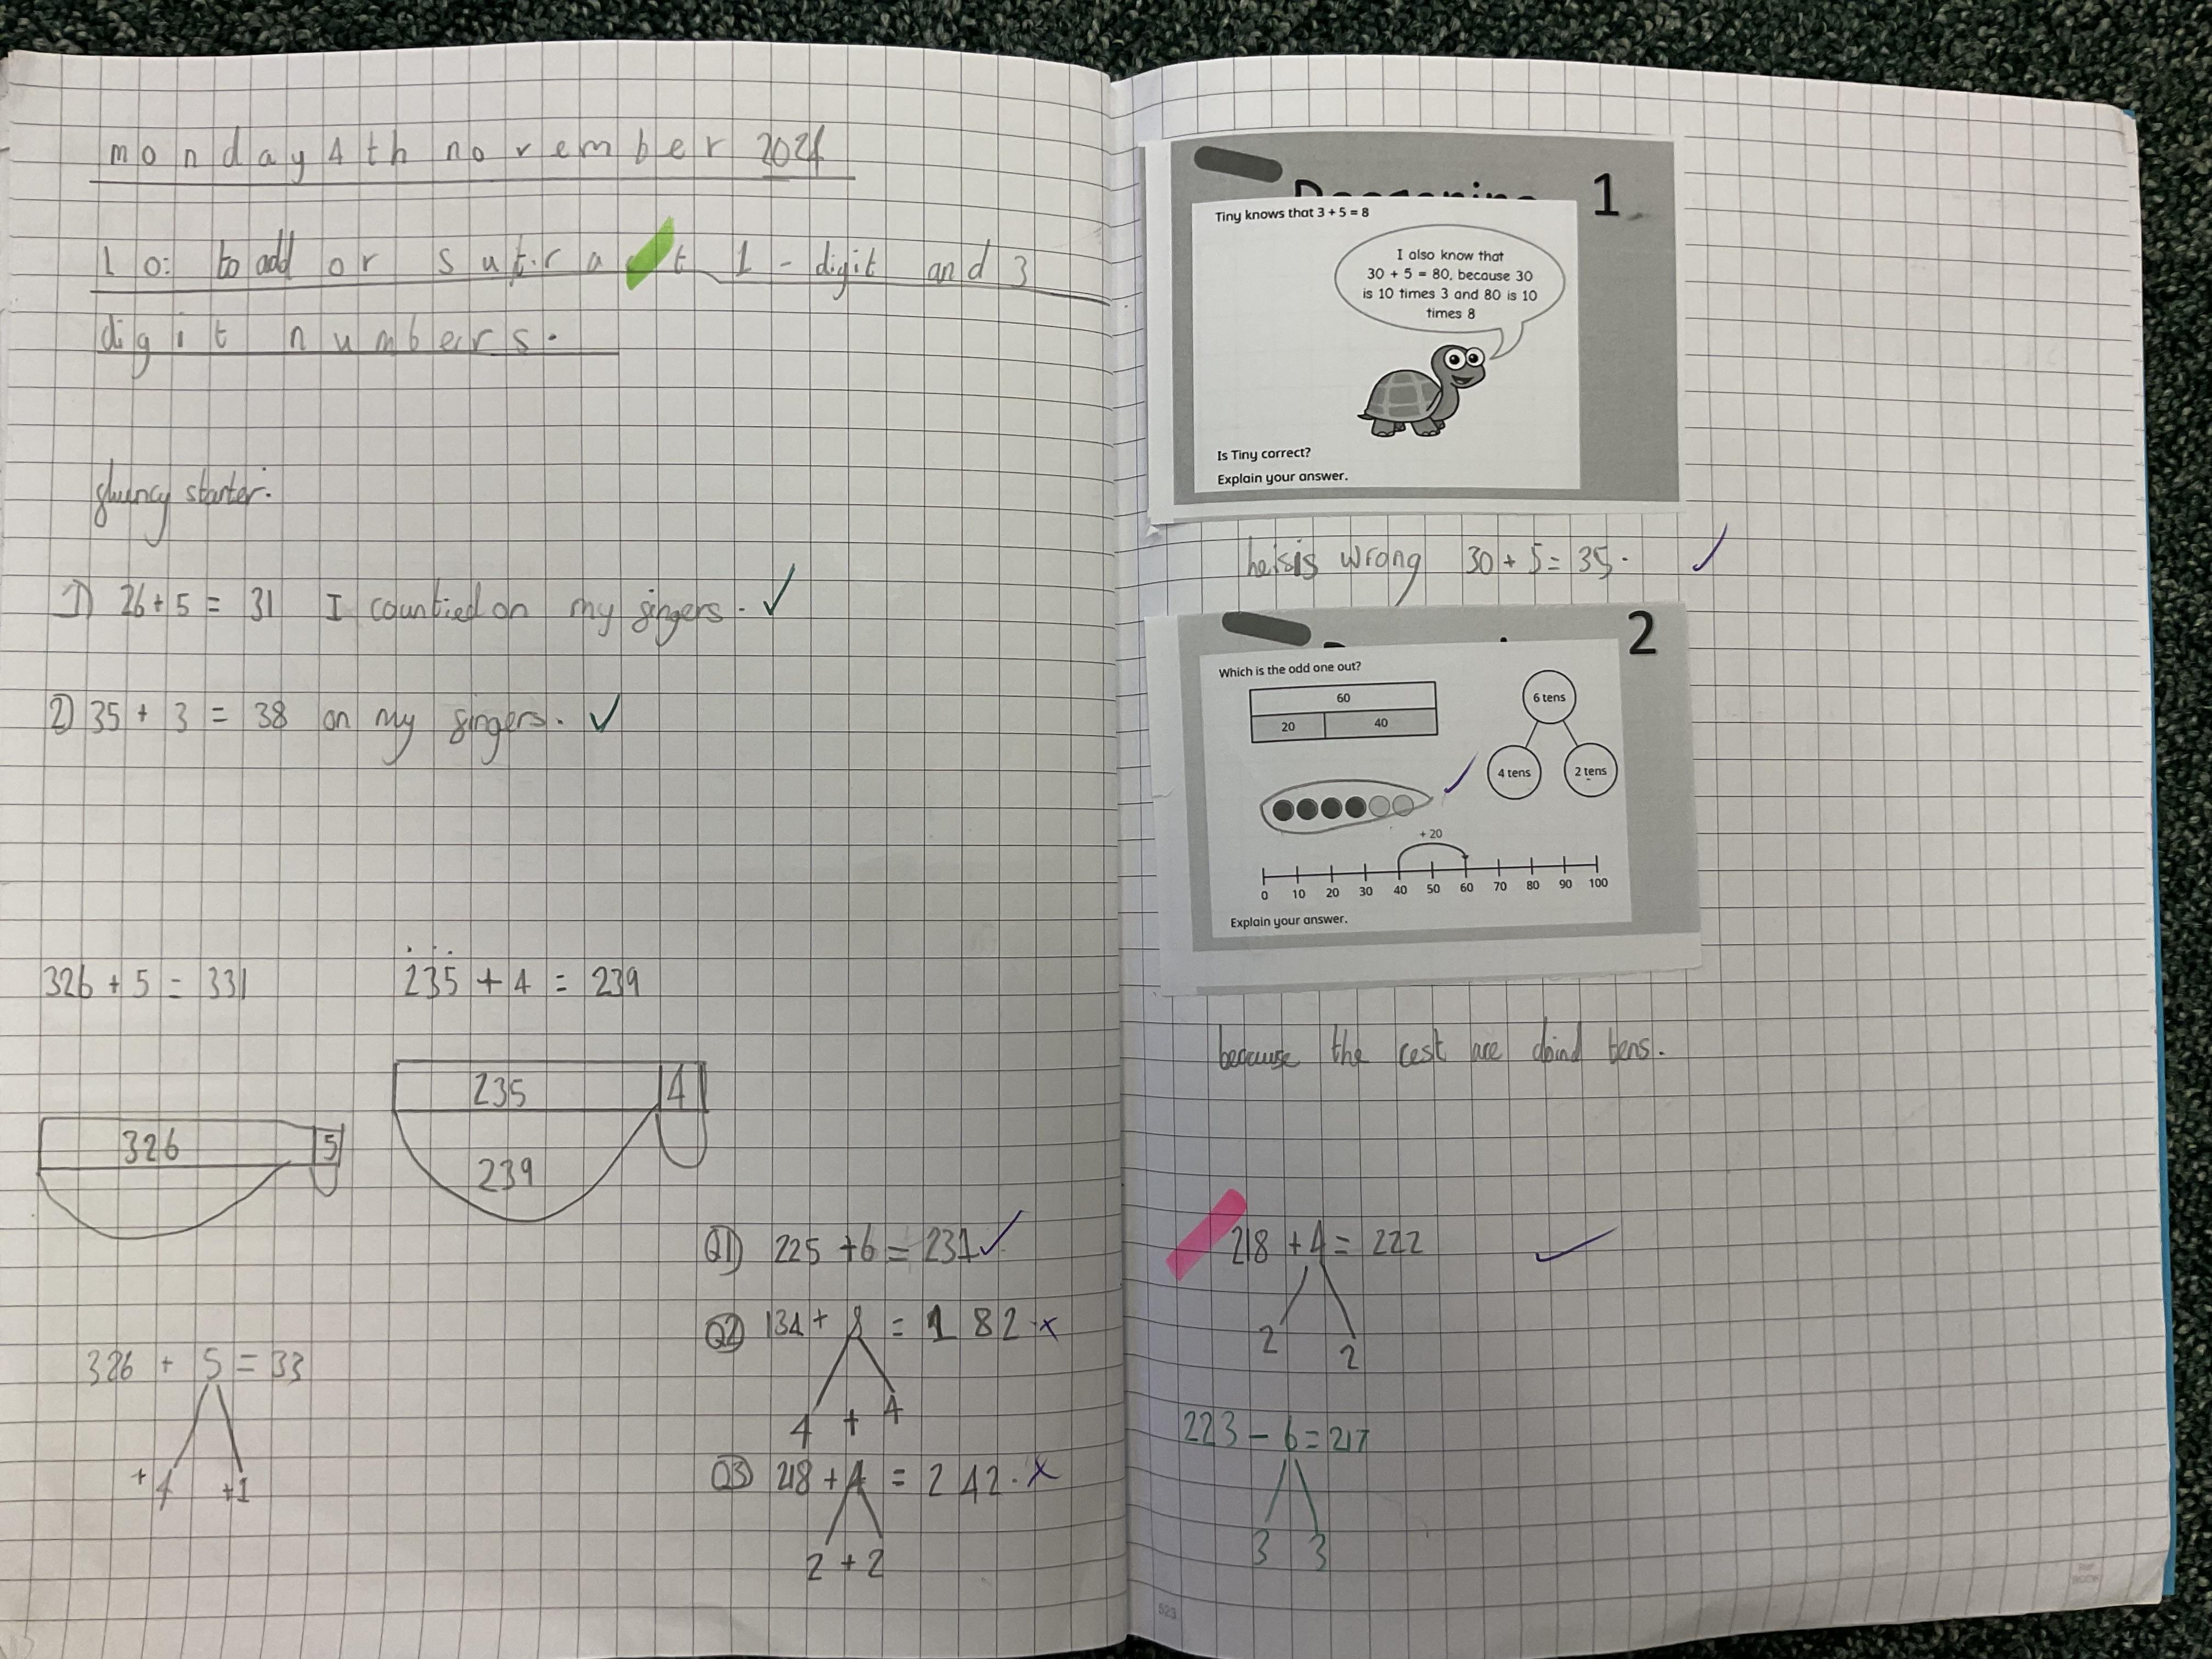 monday 4th november 2024
LO: to add or sutract 1-digit and 3
digit numbers.
fluency starter.
1) 26+5 = 31 I countied on my fingers.
2) 35 + 3 = 38 on my fingers.
326 + 5 = 331
235 + 4 = 239
326 5
235 4
239
326 + 5 = 33
+4 +1
Q1) 225 +6 = 231
Q2) 134 + 8 = 182.
4 + 4
Q3) 218 + 4 = 242.
2 + 2
1
Tiny knows that 3 + 5 = 8
I also know that
30 + 5 = 80, because 30
is 10 times 3 and 80 is 10
times 8
Is Tiny correct?
Explain your answer.
he is wrong 30 + 5 = 35.
2
Which is the odd one out?
60
20 40
6 tens
4 tens 2 tens
+ 20
0 10 20 30 40 50 60 70 80 90 100
Explain your answer.
because the rest are doind tens.
218 + 4 = 222
2 2
223 - 6 = 217
3 3
523